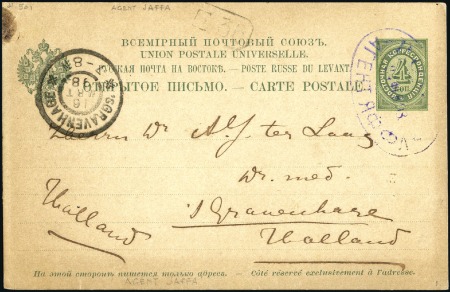 AGENT JAFFA
ВСЕМІРНЫЙ ПОЧТОВЫЙ СОЮЗЪ.
UNION POSTALE UNIVERSELLE.
ПОЧТА НА ВОСТОКѢ. — POSTE RUSSE DU LEVANT
ОТКРЫТОЕ ПИСЬМО. — CARTE POSTALE.
4
КОП.
'SGRAVENHAGE
98
АГЕНТ
Herrn Dr A. J. ter Laag
Dr. med.
's Gravenhage
Holland
Holland
На этой сторонѣ пишется только адресъ. — Côté réservé exclusivement à l'adresse.
AGENT JAFFA